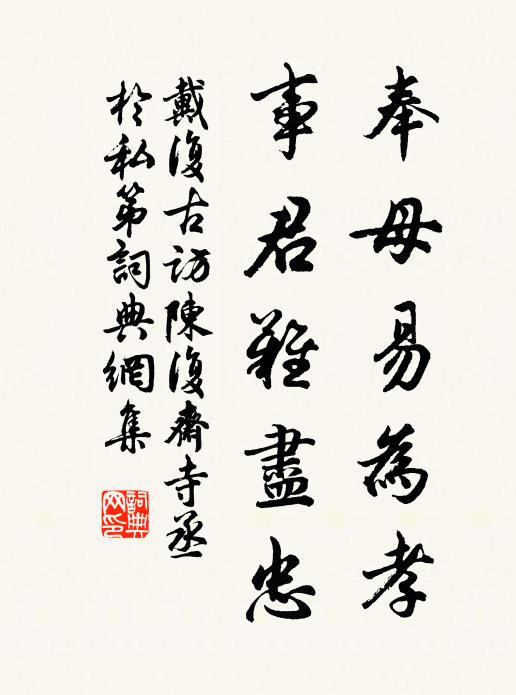 奉母易為孝
事君難盡忠
戴復古訪陳復齋寺丞
於私第詞典網集
詞典網印